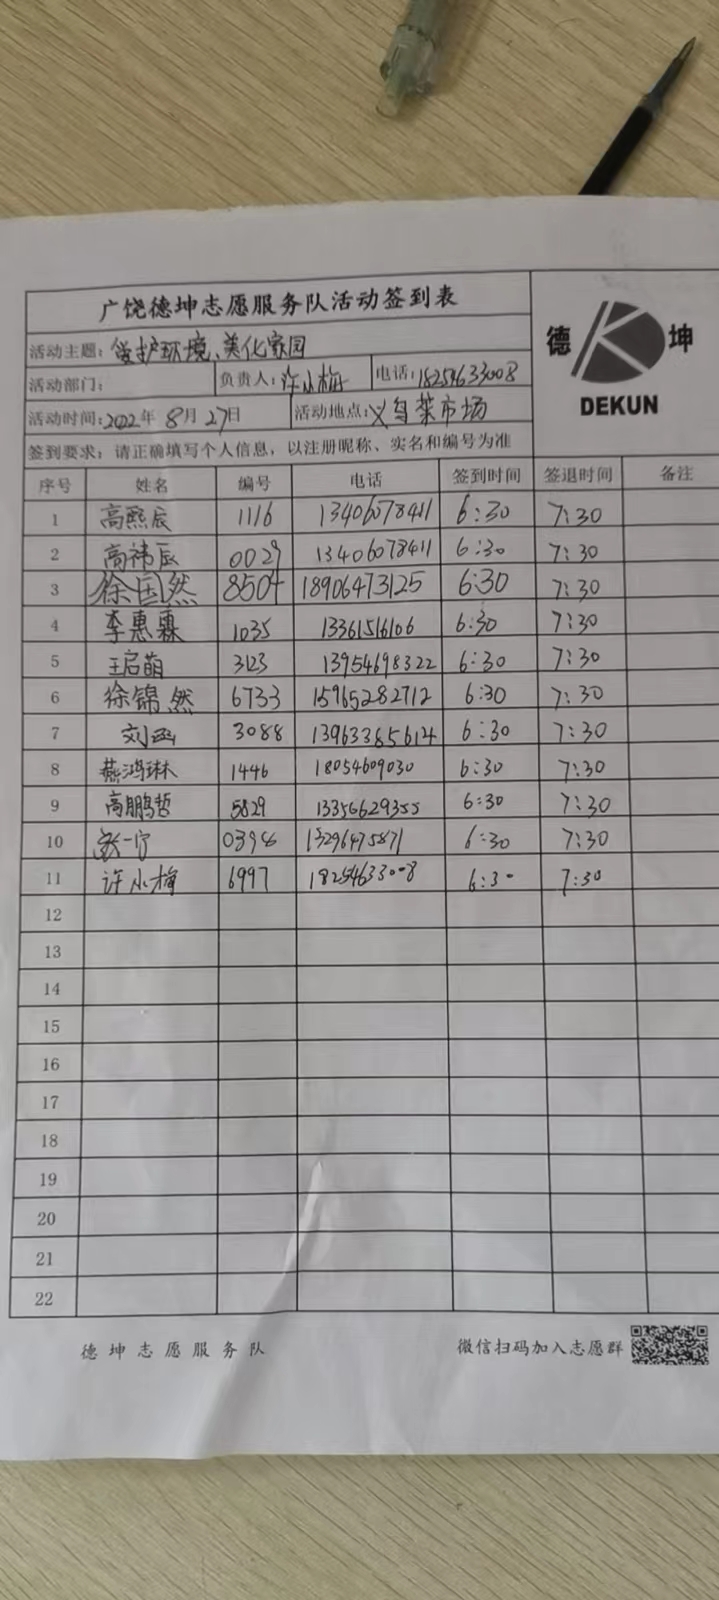 广饶德坤志愿服务队活动签到表
德 坤
DEKUN
活动主题：爱护环境、美化家园
活动部门： 负责人：许小梅 电话：18254633008
活动时间：2022年 8月27日 活动地点：义乌菜市场
签到要求：请正确填写个人信息，以注册昵称、实名和编号为准
序号 姓名 编号 电话 签到时间 签退时间 备注
1 高熙辰 1116 13406078411 6:30 7:30
2 高祎辰 0029 13406078411 6:30 7:30
3 徐国然 8504 18906473125 6:30 7:30
4 李惠霖 1035 13361516106 6:30 7:30
5 王启萌 3123 13954698322 6:30 7:30
6 徐锦然 6733 15965282712 6:30 7:30
7 刘函 3088 13963385614 6:30 7:30
8 燕鸿琳 1446 18054609030 6:30 7:30
9 高鹏哲 5829 13356629355 6:30 7:30
10 一宁 0398 13296475871 6:30 7:30
11 许小梅 6997 18254633008 6:30 7:30
12
13
14
15
16
17
18
19
20
21
22
德坤志愿服务队 微信扫码加入志愿群